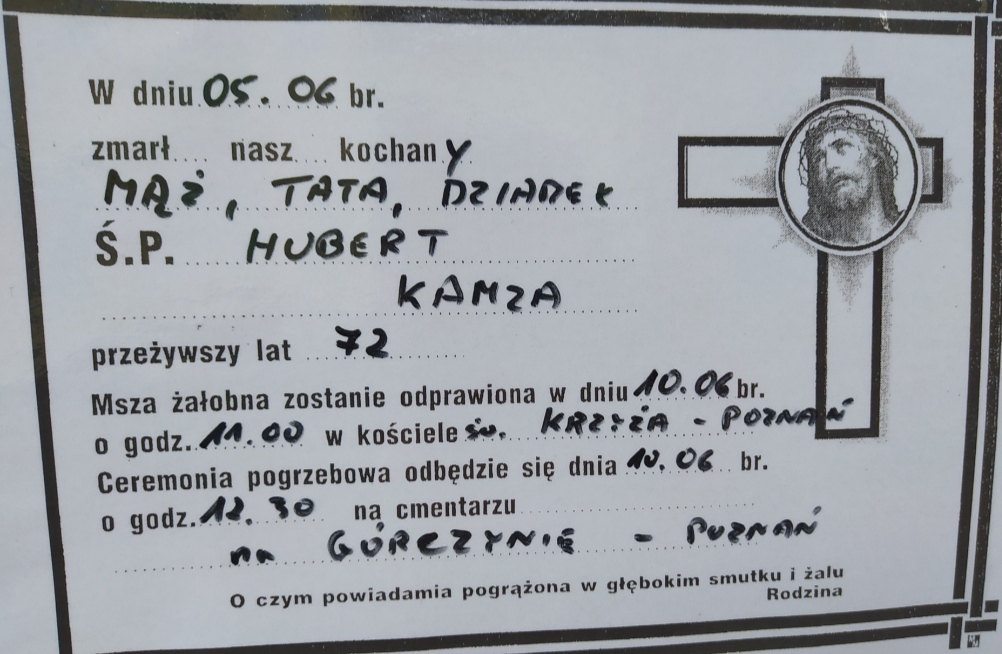 W dniu 05. 06 br.
zmarł nasz kochany
MĄŻ, TATA, DZIADEK
Ś.P. HUBERT
KAMZA
przeżywszy lat 72
Msza żałobna zostanie odprawiona w dniu 10.06 br.
o godz. 11.00 w kościele św. KRZYŻA - POZNAŃ
Ceremonia pogrzebowa odbędzie się dnia 10.06 br.
o godz. 12.30 na cmentarzu
na GÓRCZYNIE - POZNAŃ
O czym powiadamia pogrążona w głębokim smutku i żalu
Rodzina